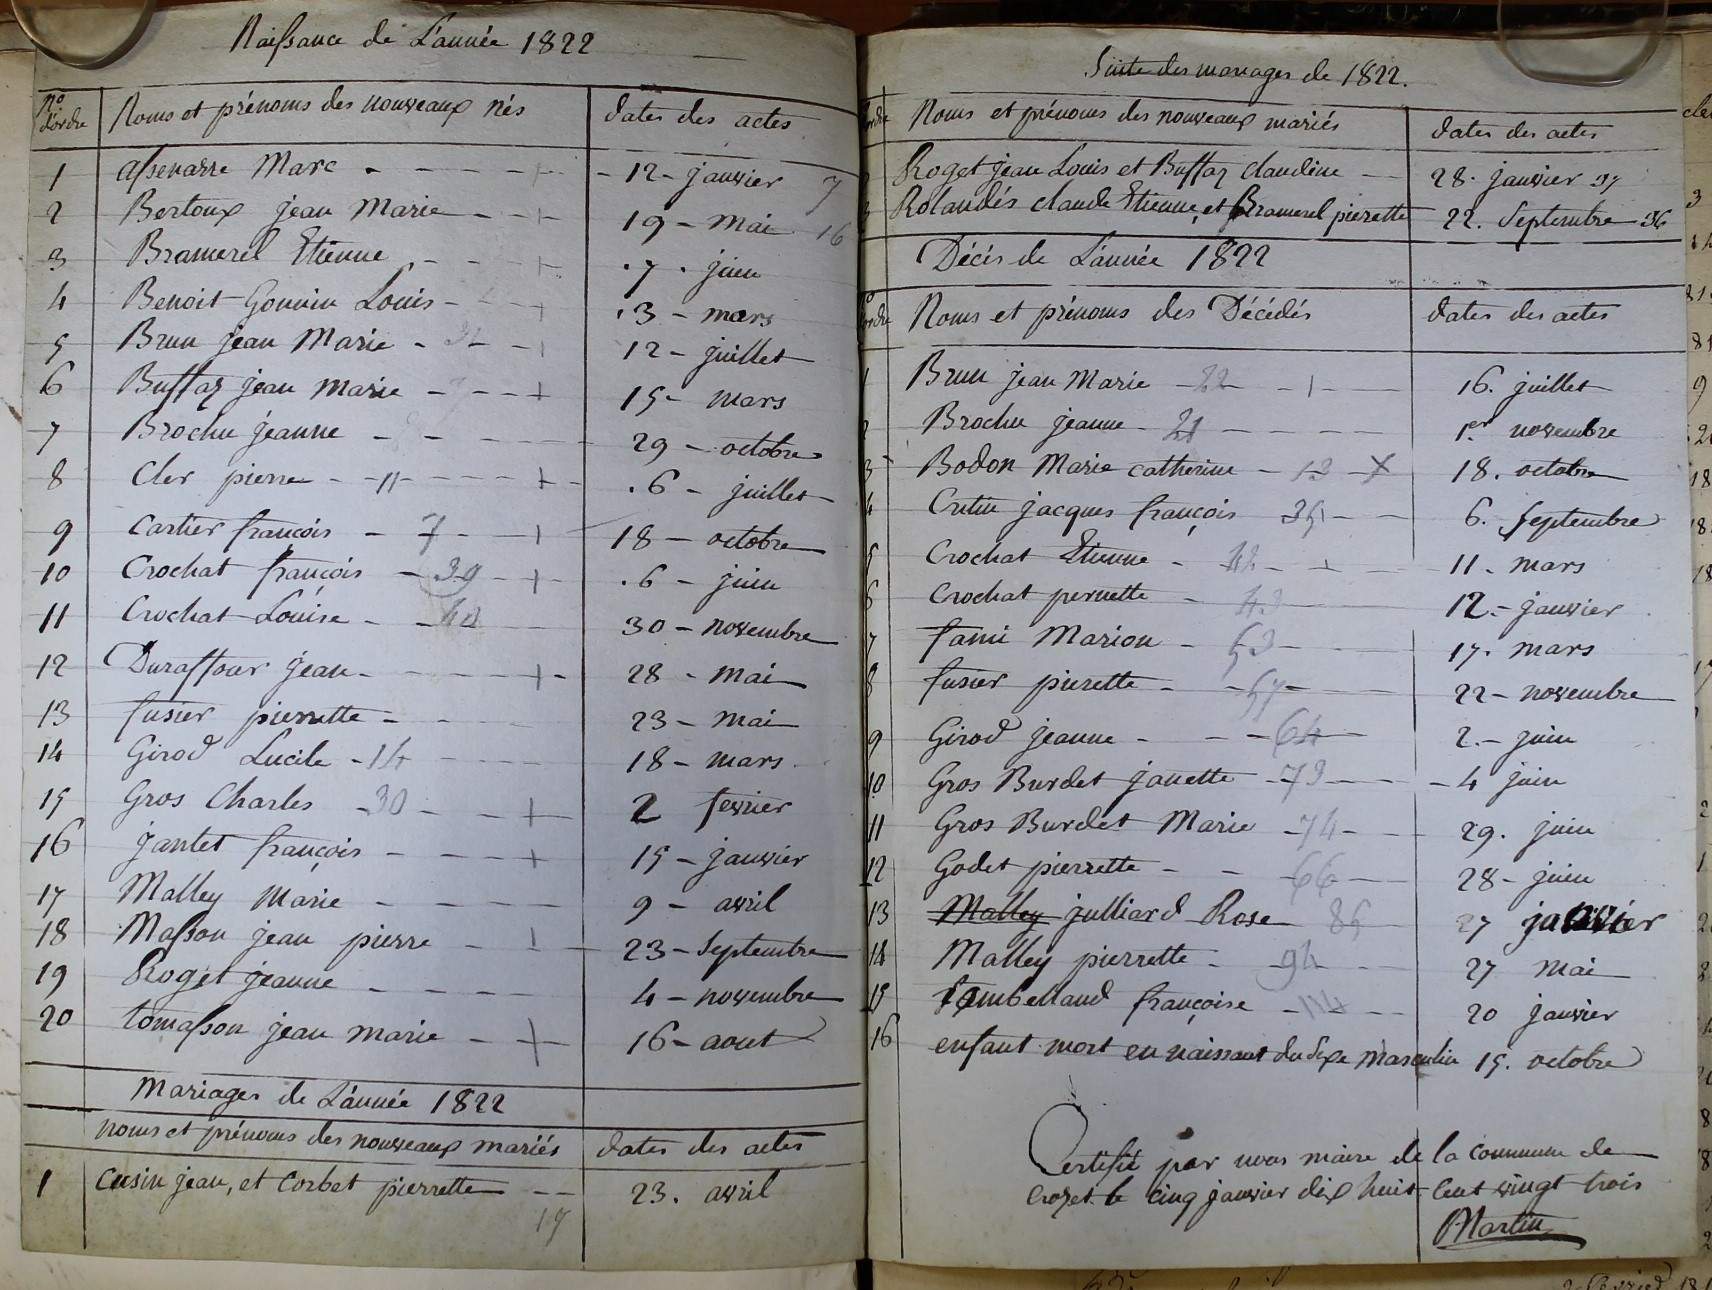 Naissance de L'année 1822
no d'ordre Noms et prénoms des nouveaux nés dates des actes
1 assenarre Marc 12 janvier 7
2 Bertoux jean Marie 19 - Mai 16
3 Bramerel Etienne 7. juin
4 Benoit Gonnin Louis 3 - mars
5 Brun jean Marie 12 - juillet
6 Buffaz jean marie 15 - mars
7 Brochu jeanne 29 - octobre
8 Cler pierre - 11 6 - juillet
9 Cartier françois - 7 18 - octobre
10 Crochat françois - 39 6 - juin
11 Crochat Louise - 40 30 - novembre
12 Duraffour jean 28 - mai
13 fusier pierrette 23 - mai
14 Girod Lucile - 14 18 - mars
15 Gros Charles - 30 2 fevrier
16 jantet françois 15 - janvier
17 Malley Marie 9 - avril
18 Masson jean pierre 23 - Septembre
19 Roget jeanne 4 - novembre
20 tomasson jean marie 16 - aout
Mariages de L'année 1822
noms et prénoms des nouveaux mariés dates des actes
1 Cusin jean, et Corbet pierrette 23. avril
19
Suite des mariages de 1822.
Noms et prénoms des nouveaux mariés dates des actes
Roget jean Louis et Buffaz claudine 28. janvier 37
Rolandés claude Etienne, et Bramerel pierette 22. Septembre 36
Décés de L'année 1822
Noms et prénoms des Décédés dates des actes
1 Brun jean Marie - 22 16. juillet
2 Brochu jeanne - 21 1er novembre
3 Bodon Marie catherine - 13 18. octobre
4 Cretin jacques françois 35 6. Septembre
5 Crochat Etienne - 42 11 - mars
6 Crochat pernette - 43 12 - janvier
7 famé Marion - 53 17. mars
8 fusier pierette - 57 22 - novembre
9 Girod jeanne - 64 2. - juin
10 Gros Burdet janette - 73 4 juin
11 Gros Burdet Marie - 74 29. juin
12 Godet pierrette - 66 28 - juin
13 Malley julliard Rose 85 27 janvier
14 Malley pierrette - 94 27 mai
15 françoise - 114 20 janvier
16 enfant mort en naissant du Sexe Masculin 15. octobre
Certifié par nous maire de la commune de
Crozet le cinq janvier dix huit cent vingt trois
Martin